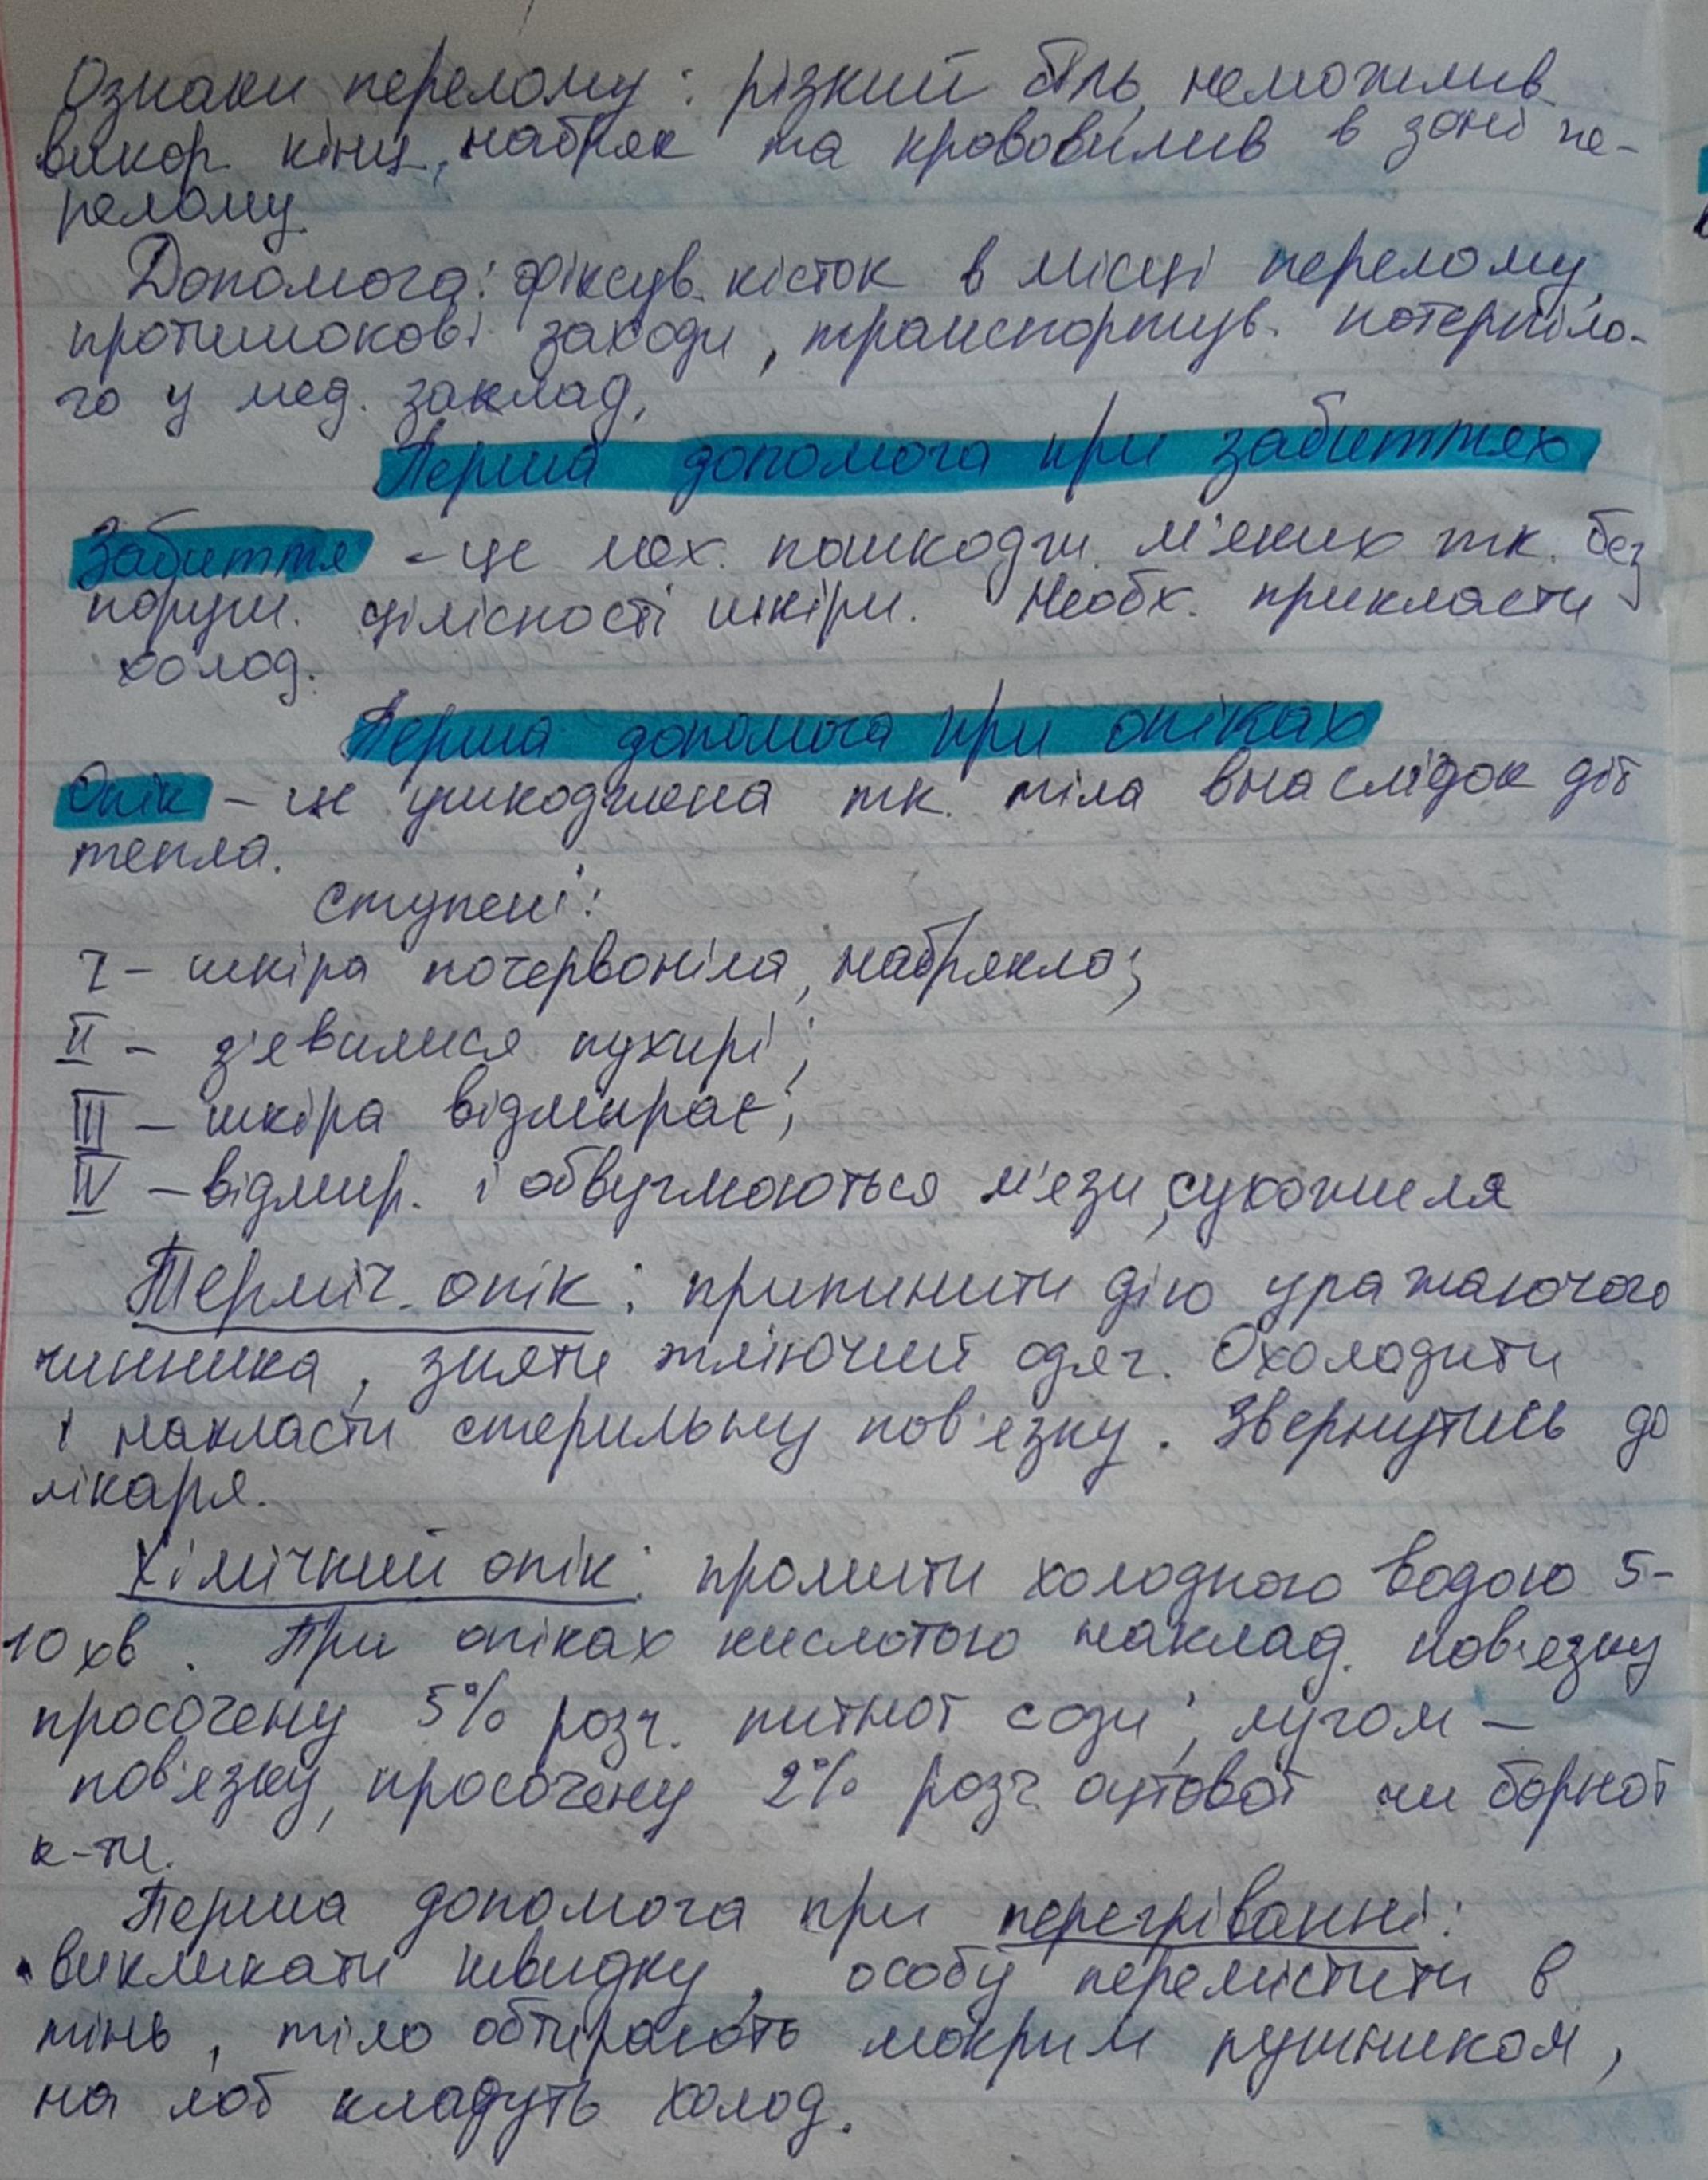 Ознаки перелому: різкий біль, неможлив.
викор. кінц., набряк та крововилив в зоні пе-
релому.
Допомога: фіксув. кісток в місці перелому,
протишокові заходи, транспортув. потерпіло-
го у мед. заклад.
Перша допомога при забиттях
Забиття - це мех. пошкодж. м'яких тк. без
поруш. цілісності шкіри. Необх. прикласти
холод.
Перша допомога при опіках
Опік - це ушкодження тк. тіла внаслідок дії
тепла.
Ступені:
I - шкіра почервоніла, набрякла;
II - з'явилися пухирі;
III - шкіра відмирає;
IV - відмир. і обвуглюються м'язи, сухожилля
Терміч. опік: припинити дію уражаючого
чинника, зняти тліючий одяг. Охолодити
і накласти стерильну пов'язку. Звернутись до
лікаря.
Хімічний опік: промити холодною водою 5-
10 хв. При опіках кислотою наклад. пов'язку
просочену 5% розч. питної соди; лугом -
пов'язку, просочену 2% розч оцтової чи борної
к-ти.
Перша допомога при перегріванні:
викликати швидку, особу перемістити в
тінь, тіло обтирають мокрим рушником,
на лоб кладуть холод.